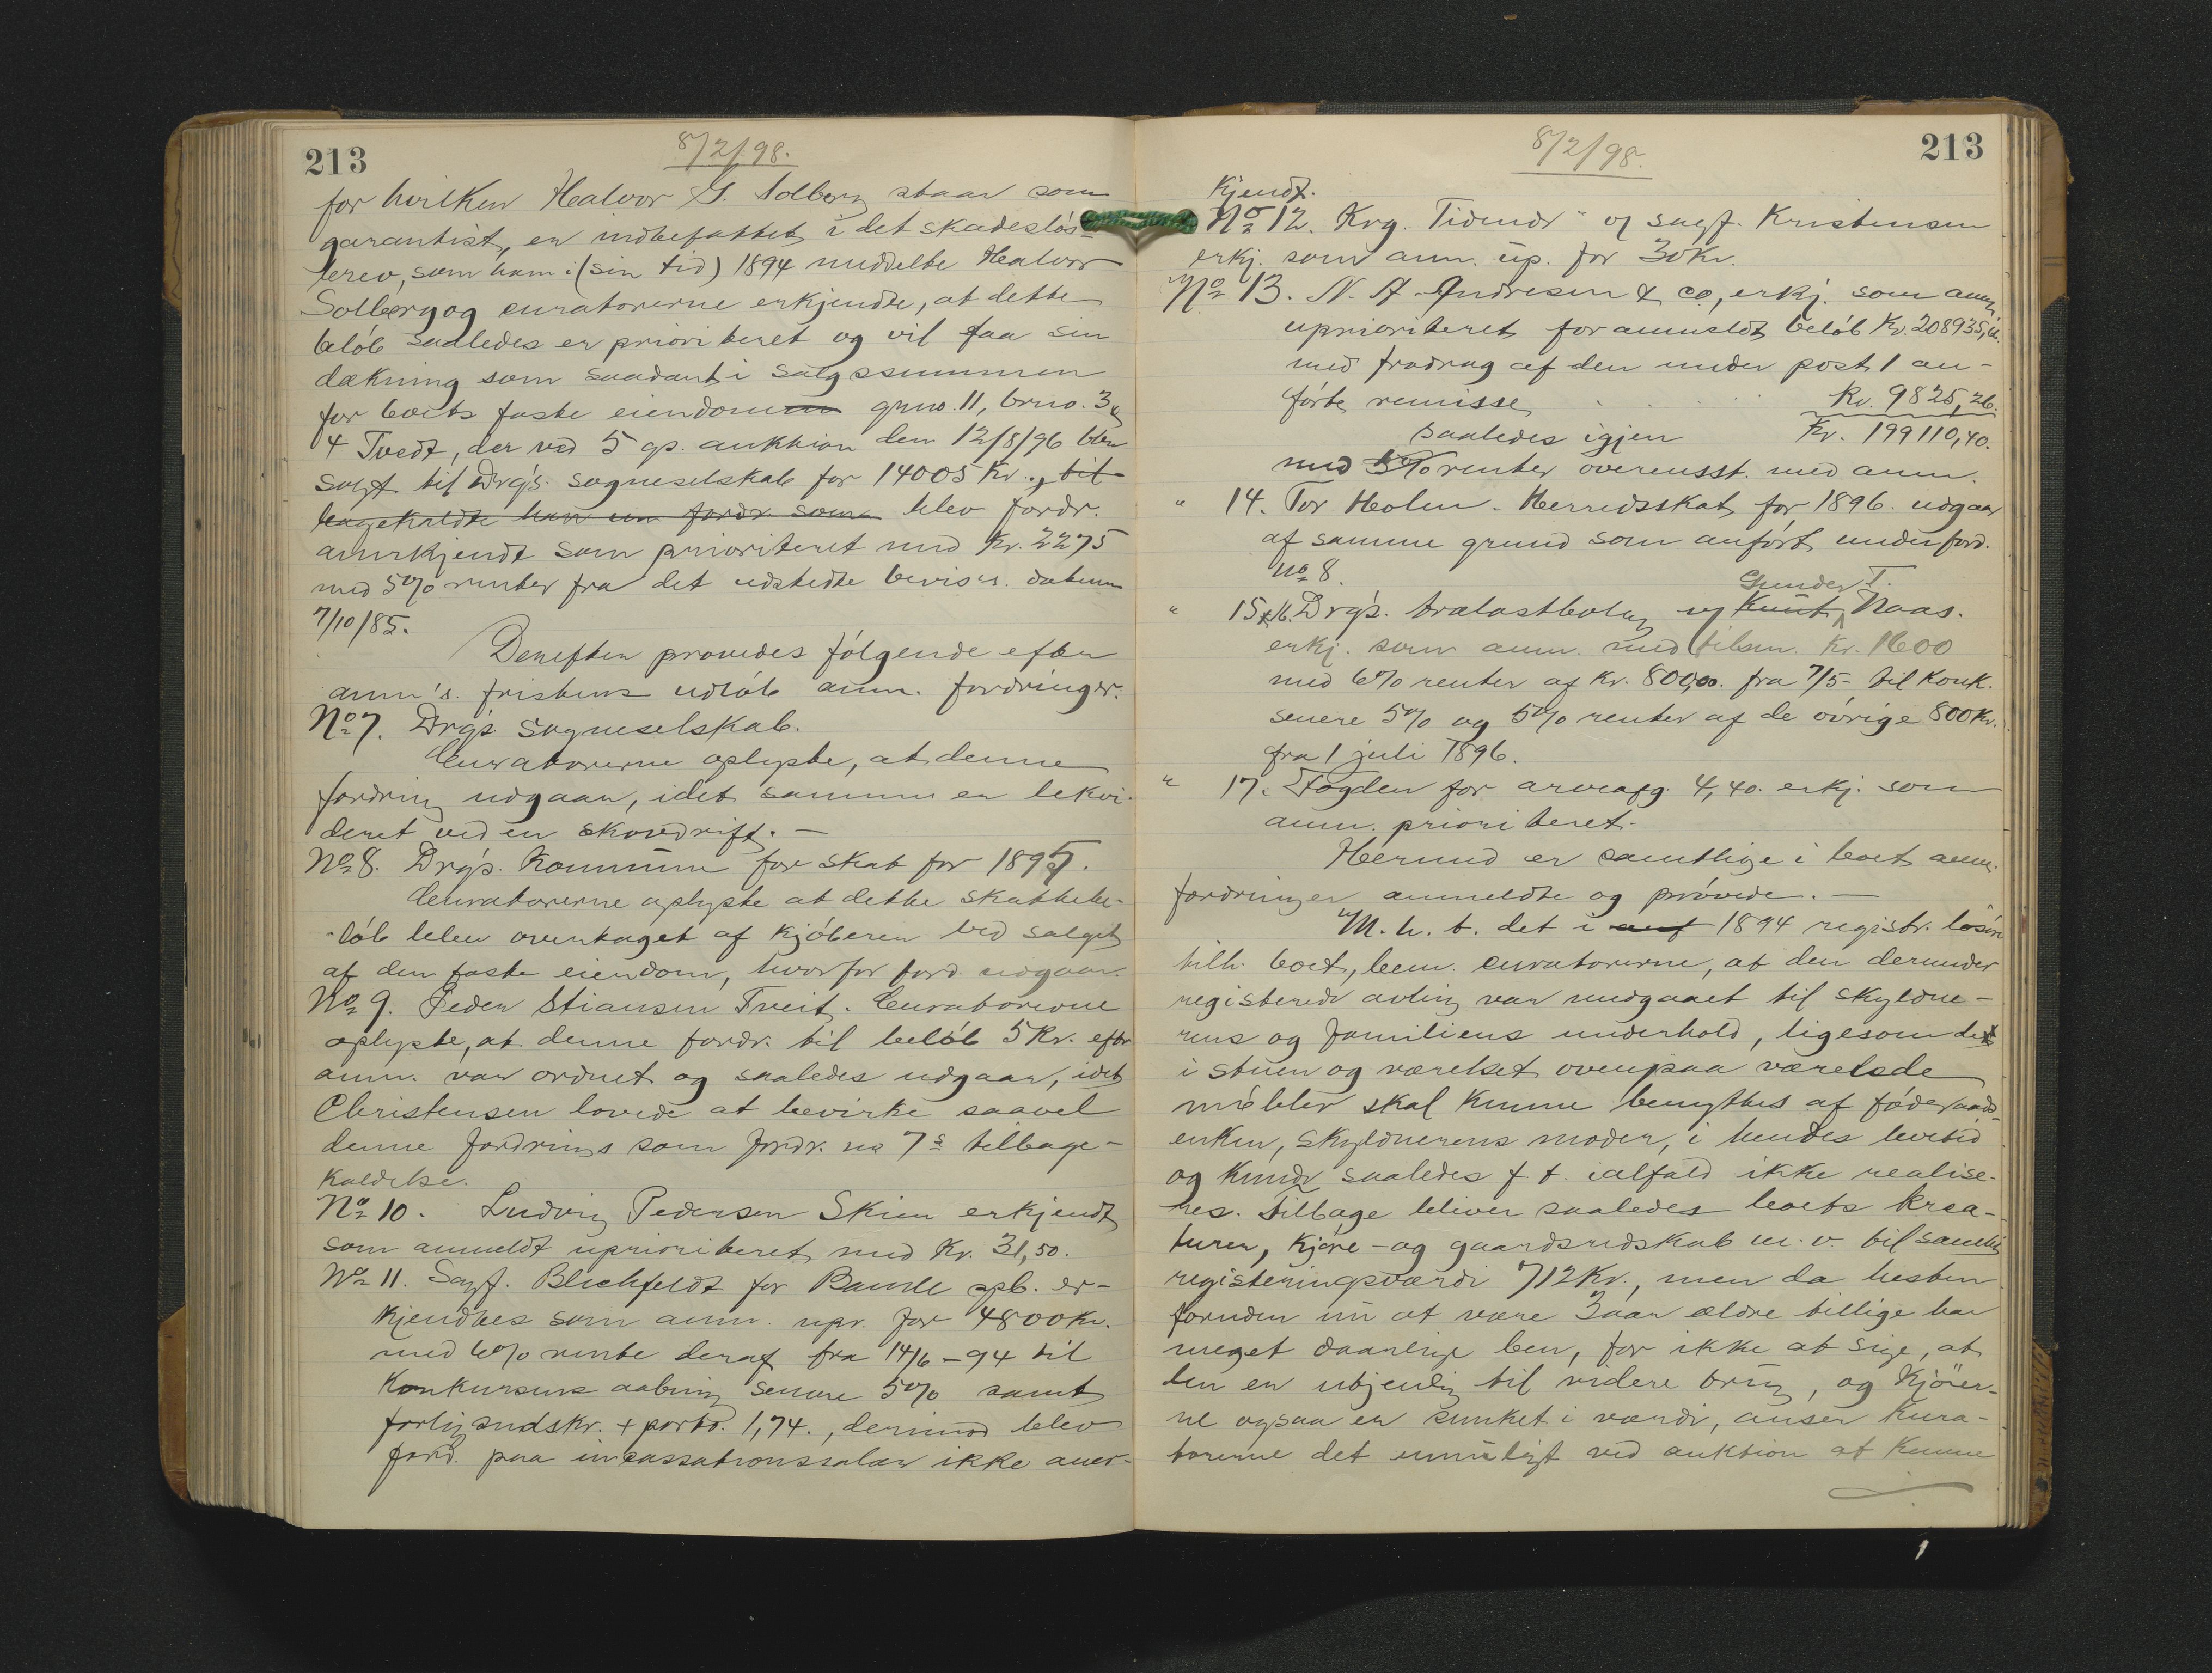 213
8/2/98.
for hvilken Halvor G. Solberg staar som
garantist, er indbefattet i det skadesløs-
brev, som ham i (sin tid) 1894 meddelte Halvor
Solberg og curatorerne erkjendte, at dette
beløb saaledes er prioriteret og vil faa sin
dækning som saadant i salgssummen
for boets faste eiendom grno. 11, brno. 3 &
4 Tvedt, der ved 5 gs. auktion den 12/8/96 blev
solgt til Drg's. sogneselskab for 14005 Kr., til-
bagekaldte han en fordr. som blev fordr.
anerkjendt som prioriteret med Kr. 2275
med 5% renter fra det udstedte bevis's datum
7/10/85.
Derefter prøvedes følgende efter
anm's. fristens udløb anm. fordringer.
No 7. Drg's Sogneselskab.
Curatorerne oplyste, at denne
fordring udgaar, idet samme er lekvi-
deret ved en skovdrift. —
No 8. Drg's. Kommune for skat for 1895.
Curatorerne oplyste at dette skattebe-
løb blev overtaget af kjøberen ved salget
af den faste eiendom, hvorfor ford. udgaar.
No 9. Peder Stiansen Tveit. Curatorerne
oplyste, at denne fordr. til beløb 5 Kr. eftr
anm. var ordnet og saaledes udgaar, idet
Christensen lovede at bevirke saavel
denne fordrings som fordr. no 7s tilbage-
kaldelse.
No 10. Ludvig Pedersen Skien erkjendt
som anmeldt uprioriteret med Kr. 31,50.
No 11. Sagf. Blichfeldt for Bamle spb. er-
kjendtes som anm. upr. for 4800 Kr.
med 6% rente deraf fra 14/6 - 94 til
Konkursens aabning senere 5% samt
forligsudskr. + porto. 1,74., derimod blev
ford. paa incassationssalær ikke aner-
213
8/2/98.
kjendt.
No 12. Krg. Tidende" og sagf. Kristensen
erkj. som anm. up. for 30 Kr.
No 13. N. A. Andresen & Co, erkj. som anm.
uprioriteret for anmeldt beløb Kr. 208935,66.
med fradrag af den under post 1 an-
førte remisse . . . . Kr. 9825,26.
saaledes igjen Kr. 199110,40.
med 5% renter overensst. med anm.
" 14. Tor Holm. Herredsskat for 1896. udgaar
af samme grund som anført under ford.
no 8.
Gunder T.
" 15 & 16. Drg's. bralastbolag og Knut Naas.
erkj. som anm. med tilsm. Kr. 1600
med 6% renter af Kr. 800,00. fra 7/5- til konk.
senere 5% og 5% renter af de øvrige 800 Kr.
fra 1 juli 1896.
" 17. Fogden for arveafg. 4,40. erkj. som
anm. prioriteret.
Hermed er samtlige i boet anm.
fordringer anmeldte og prøvede. —
M. h. t. det i 1894 registr. løsøre
tilh. boet, bem. curatorerne, at den derunder
registerede avling var medgaaet til skyldne-
rens og familiens underhold, ligesom det
i stuen og værelset ovenpaa værelsde
møbler skal kunne benyttes af føderaads-
enken, skyldnerens moder, i hendes levetid
og kunde saaledes f. t. ialfald ikke realise-
res. Tilbage bliver saaledes boets krea-
turer, kjøre- og gaardsredskab m. v. til samlet
registeringsværdi 712 Kr., men da hesten
foruden nu at være 3 aar ældre tillige har
meget daarlige ben, for ikke at sige, at
den er ubjenlig til videre brug, og kjøer-
ne ogsaa er sunket i værdi, anser kura-
torerne det umuligt ved auktion at kunne